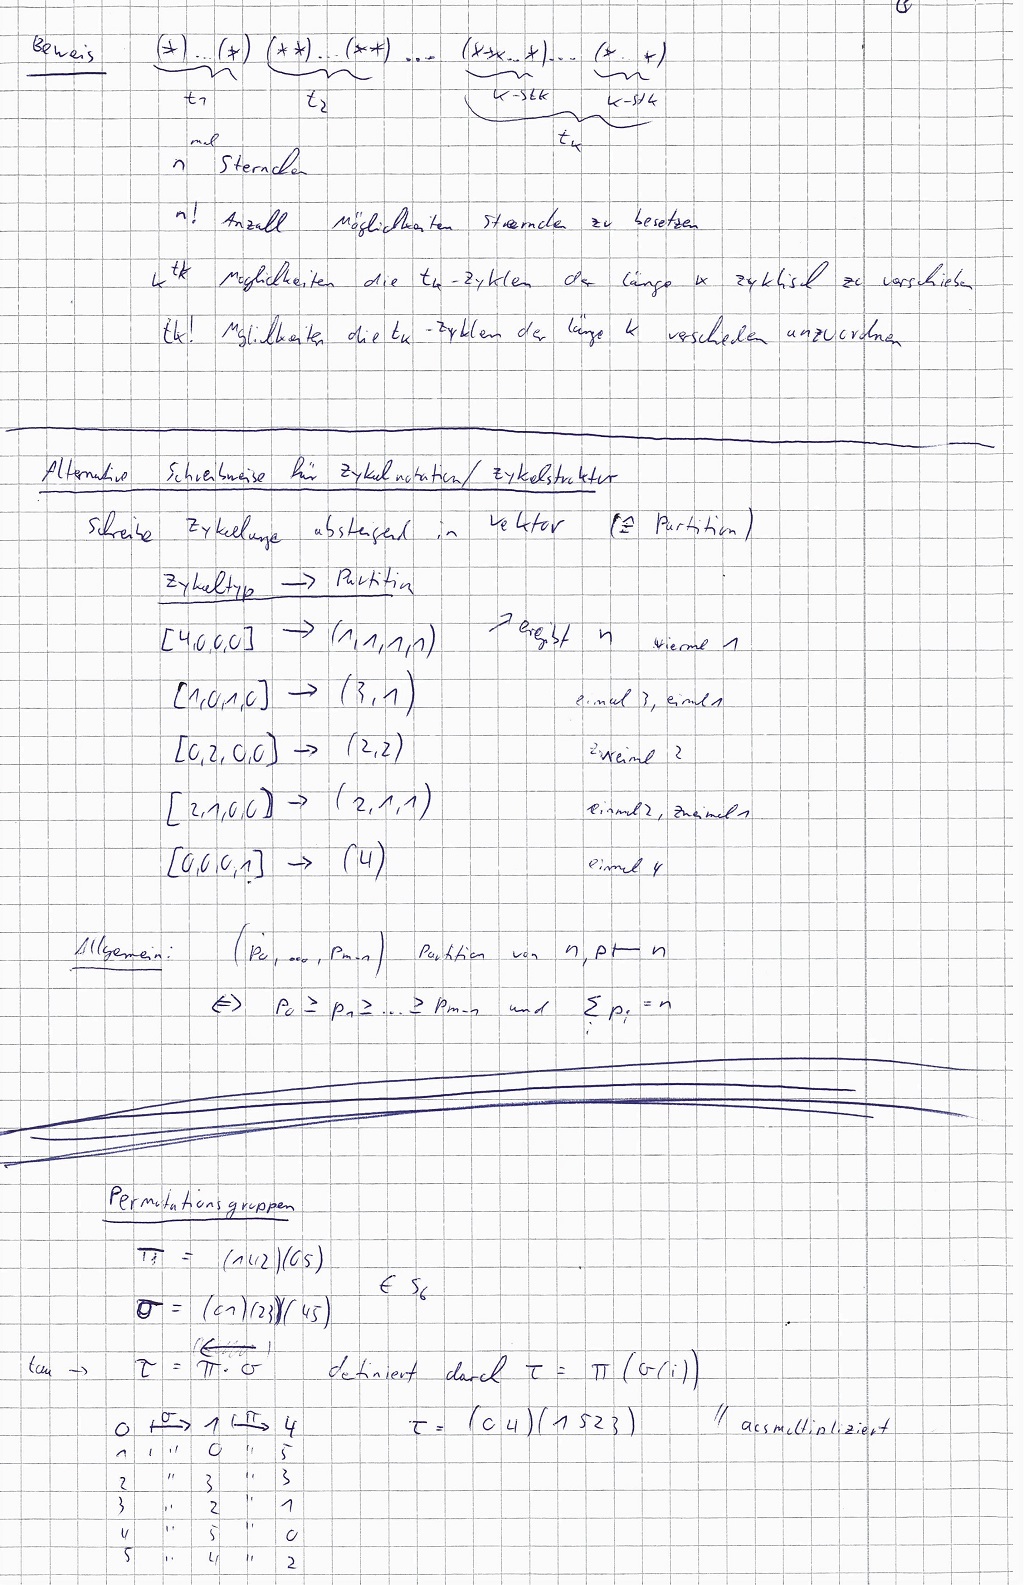 Beweis (*)...(*) (**)...(**) .... (***...*)... (*...*)
t1 t2 k-Stk k-Stk
tk
n mal Sternchen
n! Anzall Möglichkeiten Sternchen zu besetzen
k^tk Moglichkeiten die tk-Zyklen der länge k zyklisch zu verschieben
tk! Möglichkeiten die tk-Zyklen der länge k verschieden anzuordnen
Alternative Schreibweise für Zykelnotation/Zykelstruktur
Schreibe Zykellänge absteigend in Vektor (≙ Partition)
Zykeltyp → Partition
[4,0,0,0] → (1,1,1,1) ↗ ergibt n viermal 1
[1,0,1,0] → (3,1) einmal 3, einmal 1
[0,2,0,0] → (2,2) zweimal 2
[2,1,0,0] → (2,1,1) einmal 2, zweimal 1
[0,0,0,1] → (4) einmal 4
Allgemein: (p0, ..., pm-1) Partition von n, p ⊢ n
⇔ p0 ≥ p1 ≥ ... ≥ pm-1 und ∑i pi = n
Permutationsgruppen
π = (142)(05)
∈ S6
σ = (01)(23)(45)
tau → τ = π · σ definiert durch τ = π(σ(i))
0 ↦σ 1 ↦π 4 τ = (04)(1523) // ausmultipliziert
1 " 0 " 5
2 " 3 " 3
3 " 2 " 1
4 " 5 " 0
5 " 4 " 2